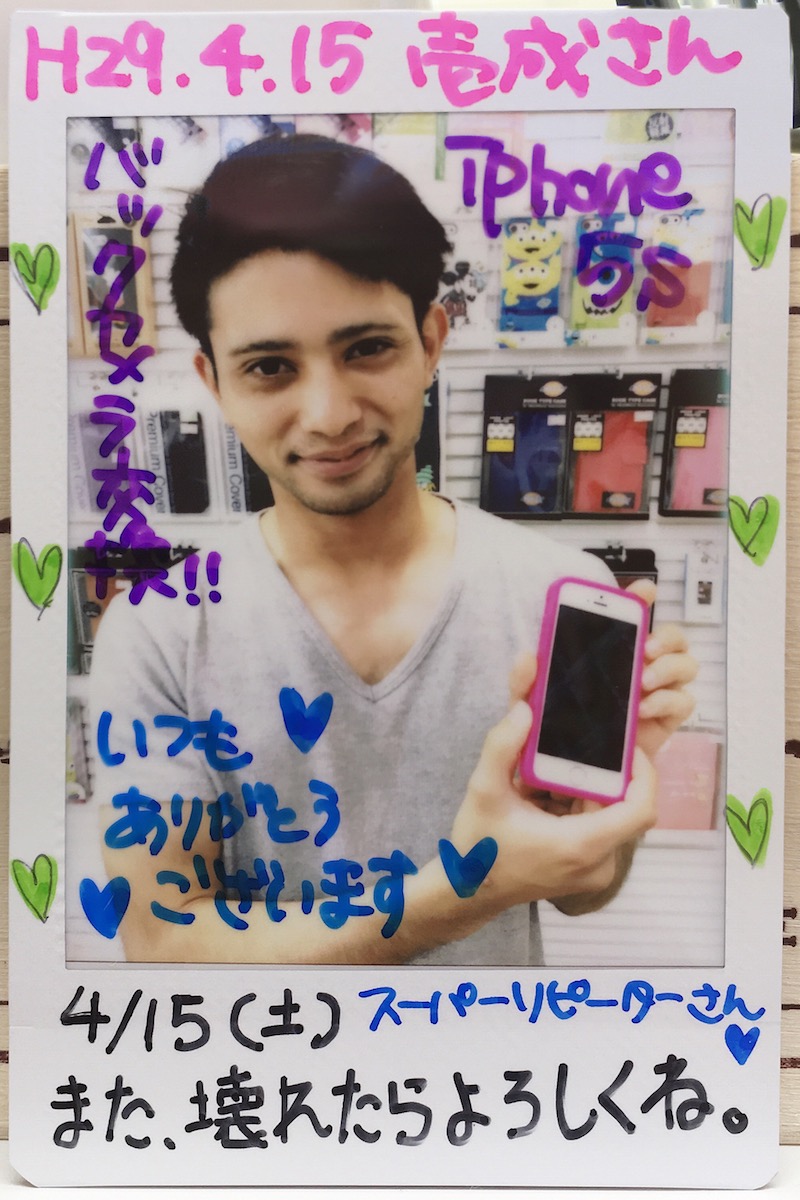 H29.4.15 壱成さん
バックカメラ交換!!
iphone
5s
Premium Cover
Premium Cover
いつも
ありがとう
ございます
4/15(土) スーパーリピーターさん
また、壊れたらよろしくね。